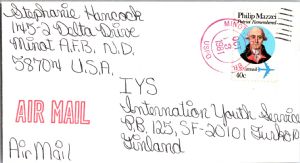 Stephanie Hancock
145-2 Delta Drive
Minot A.F.B, N.D.
58704 U.S.A.
Philip Mazzei
Patriot Remembered
USAirmail
40c
MINOT
1981
USPO
AIR MAIL
Air Mail
IYS
Internation Youth Service
P.B. 125, SF-20101 Turku
Finland